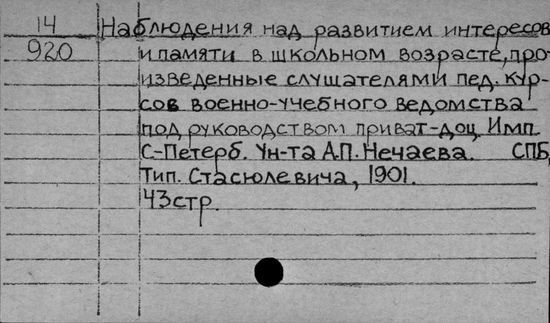 14 Наблюдения над развитием интересов
920 и памяти в школьном возрасте, про-
изведенные слушателями пед. кур-
сов военно-учебного ведомства
под руководством приват-доц. Имп.
С-Петерб. Ун-та А.П. Нечаева. СПБ,
Тип. Стасюлевича, 1901.
43 стр.